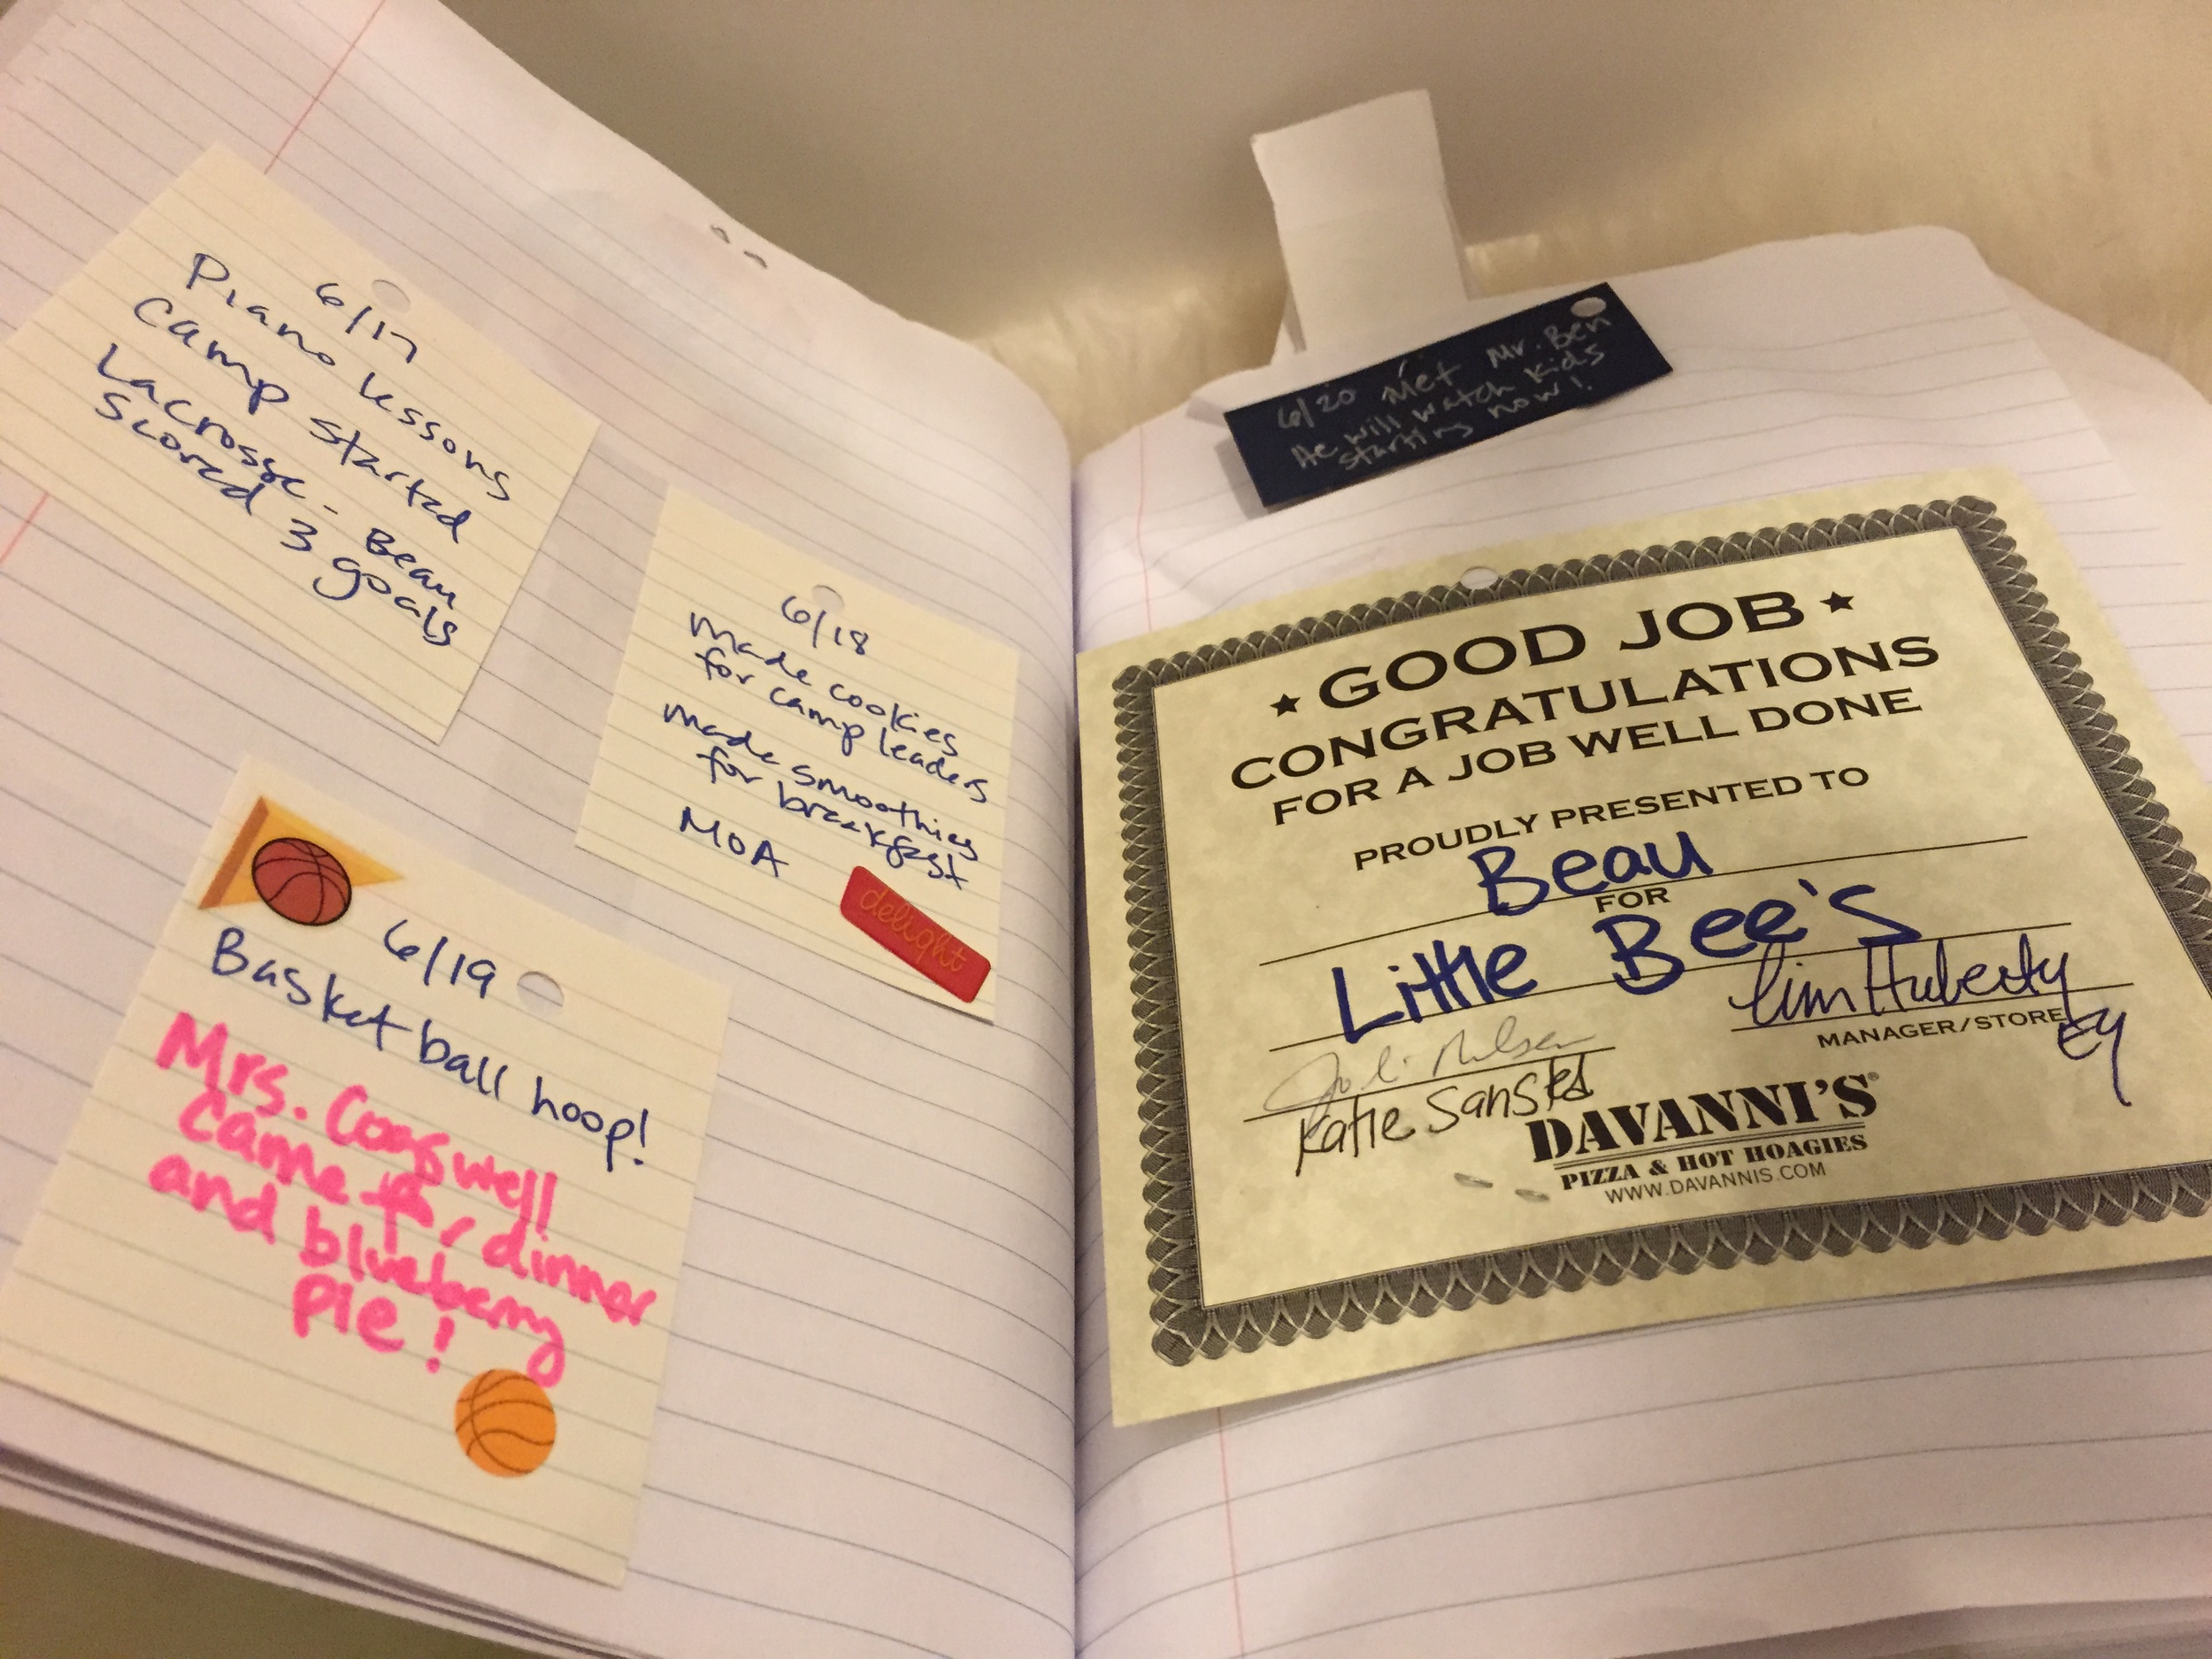 6/17
Piano lessons
Camp started
Lacrosse - Beau
scored 3 goals
6/18
Made cookies
for camp leaders
Made smoothies
for breakfast
MOA
delight
6/19
Basketball hoop!
Mrs. Cogswell
came for dinner
and blueberry
pie!
6/20 Met Mr. Ben
He will watch kids
starting now!
★ GOOD JOB ★
CONGRATULATIONS
FOR A JOB WELL DONE
PROUDLY PRESENTED TO
Beau
FOR
Little Bee's
Jim Huberty
MANAGER/STORE
Katie
DAVANNI'S®
PIZZA & HOT HOAGIES
WWW.DAVANNIS.COM